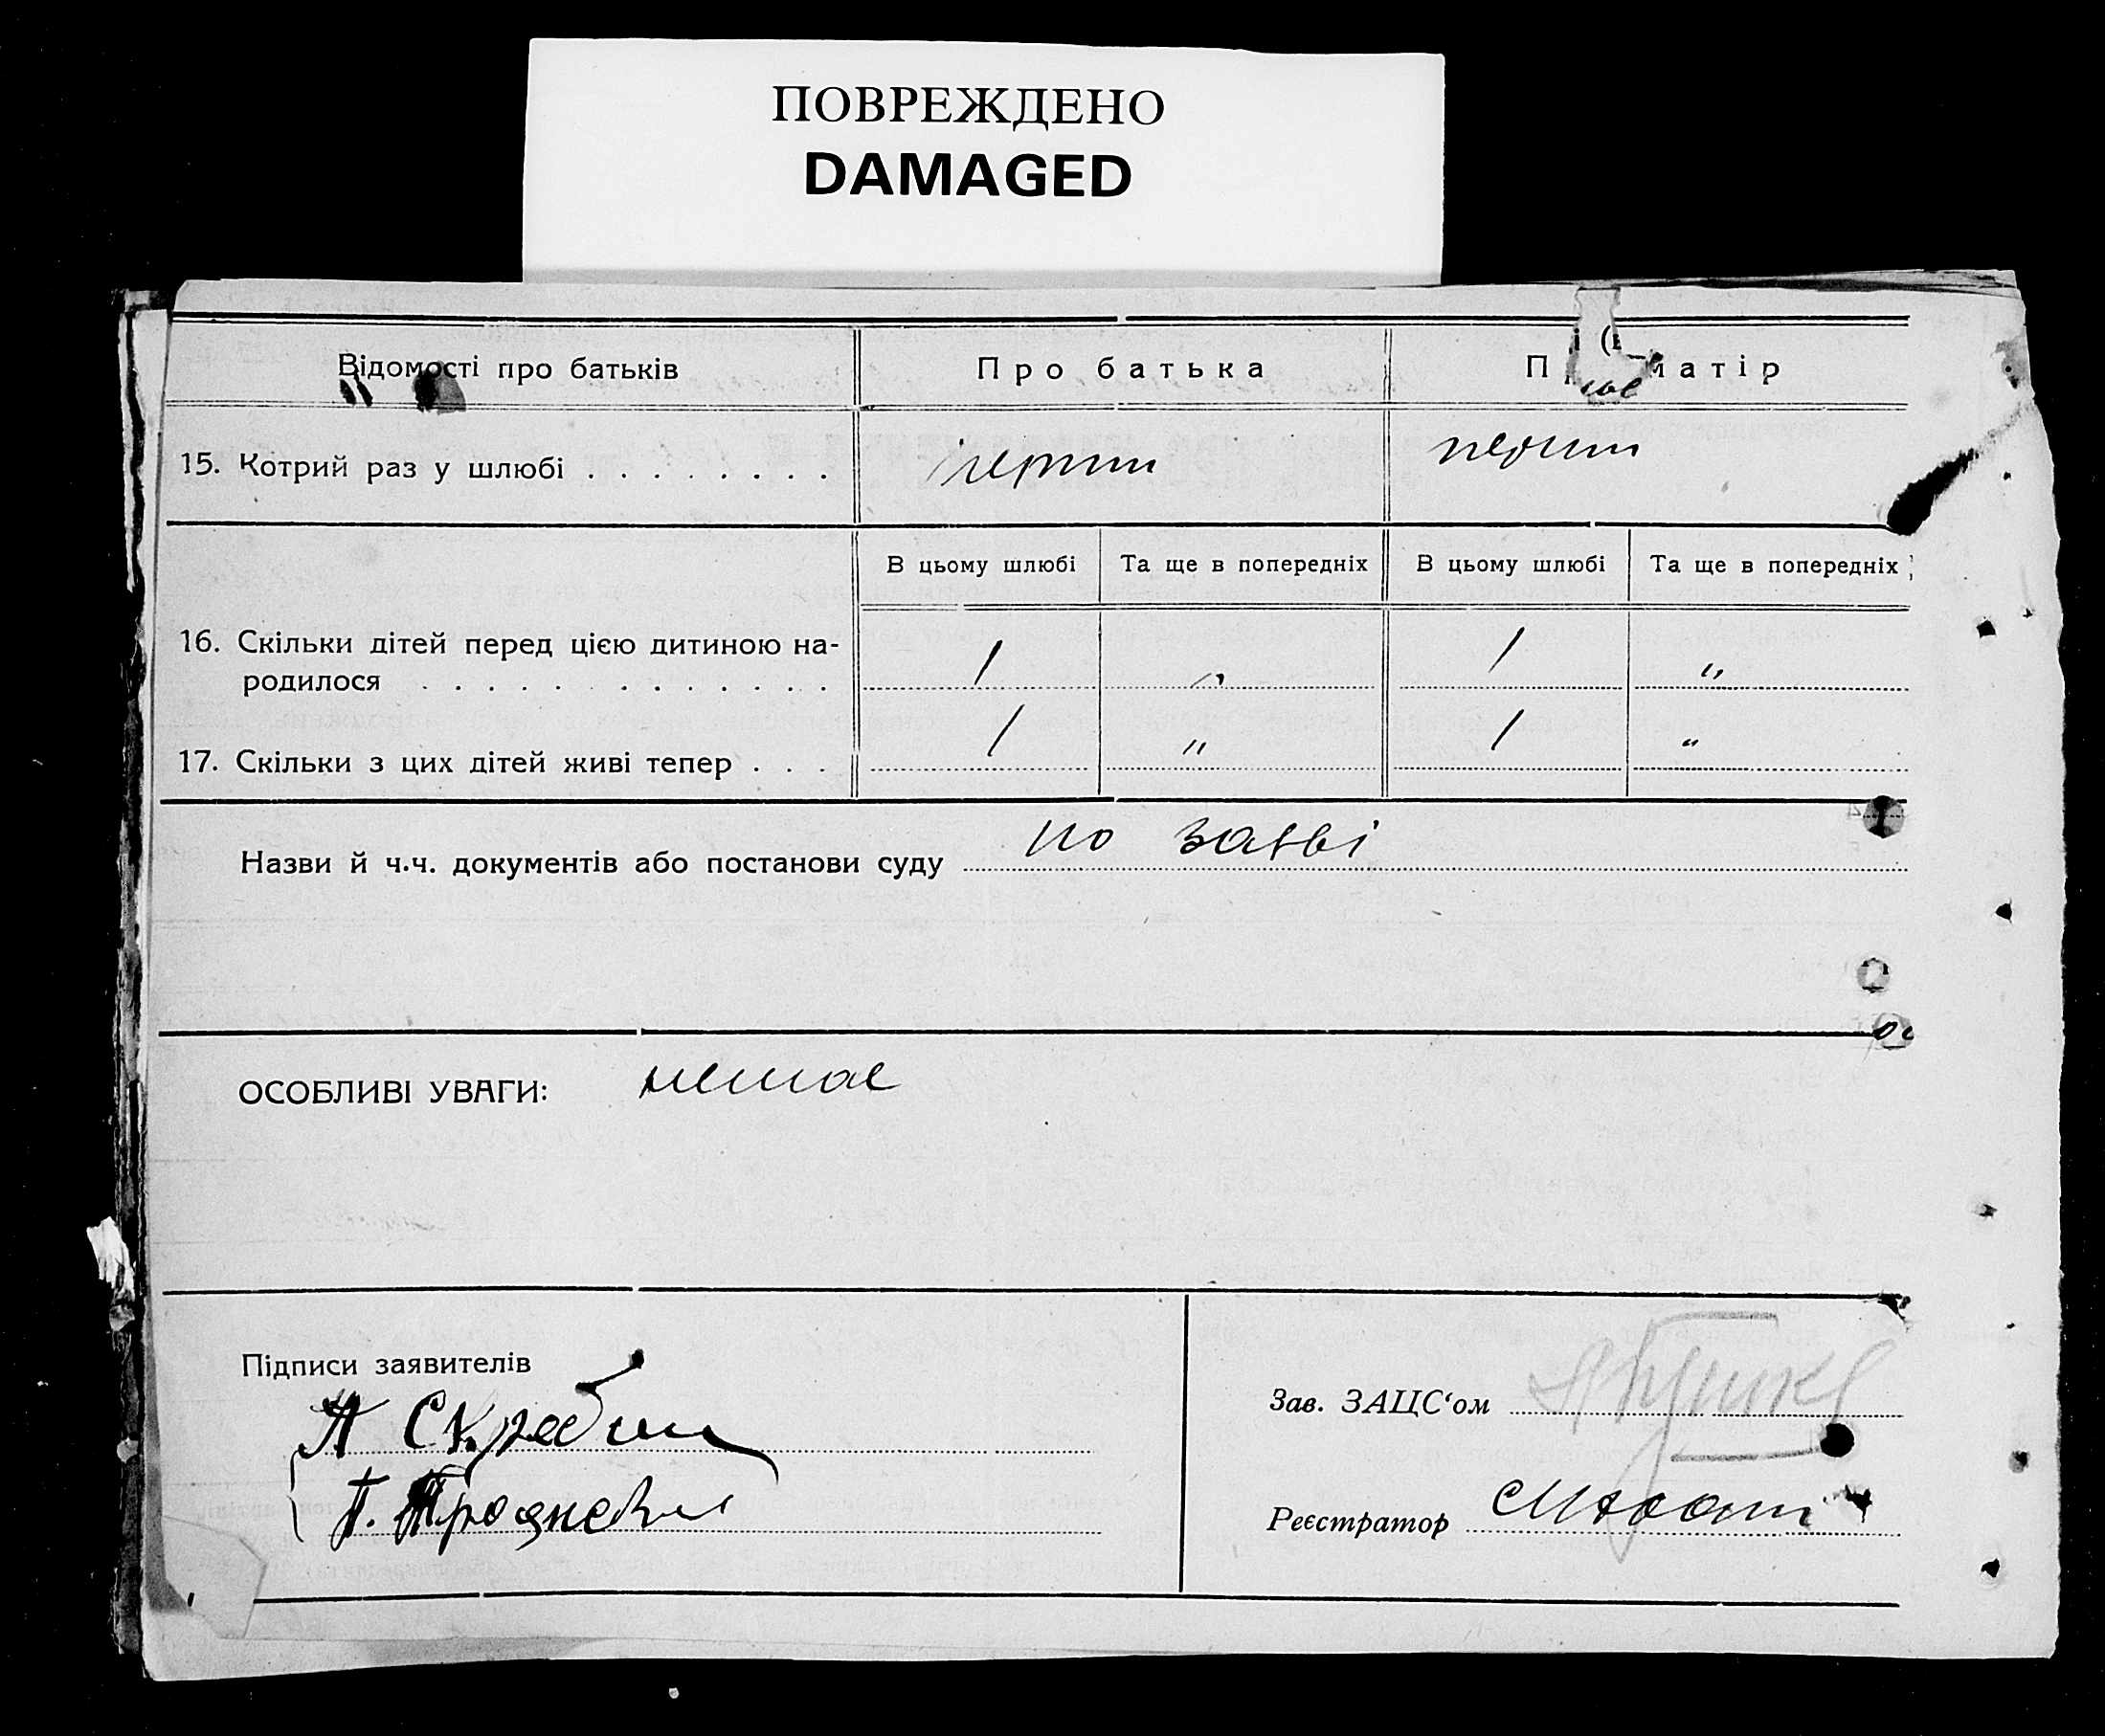 ПОВРЕЖДЕНО
DAMAGED
Відомості про батьків
Про батька
матір
15. Котрий раз у шлюбі . . . . . . . .
перший
перший
В цьому шлюбі
Та ще в попередніх
В цьому шлюбі
Та ще в попередніх
16. Скільки дітей перед цією дитиною на-
родилося . . . . . . . . . . . . .
1
"
1
"
17. Скільки з цих дітей живі тепер . . .
1
"
1
"
Назви й ч.ч. документів або постанови суду по заяві
ОСОБЛИВІ УВАГИ: немає
Підписи заявителів
А Скрябин
Зав. ЗАЦС‘ом
Реєстратор